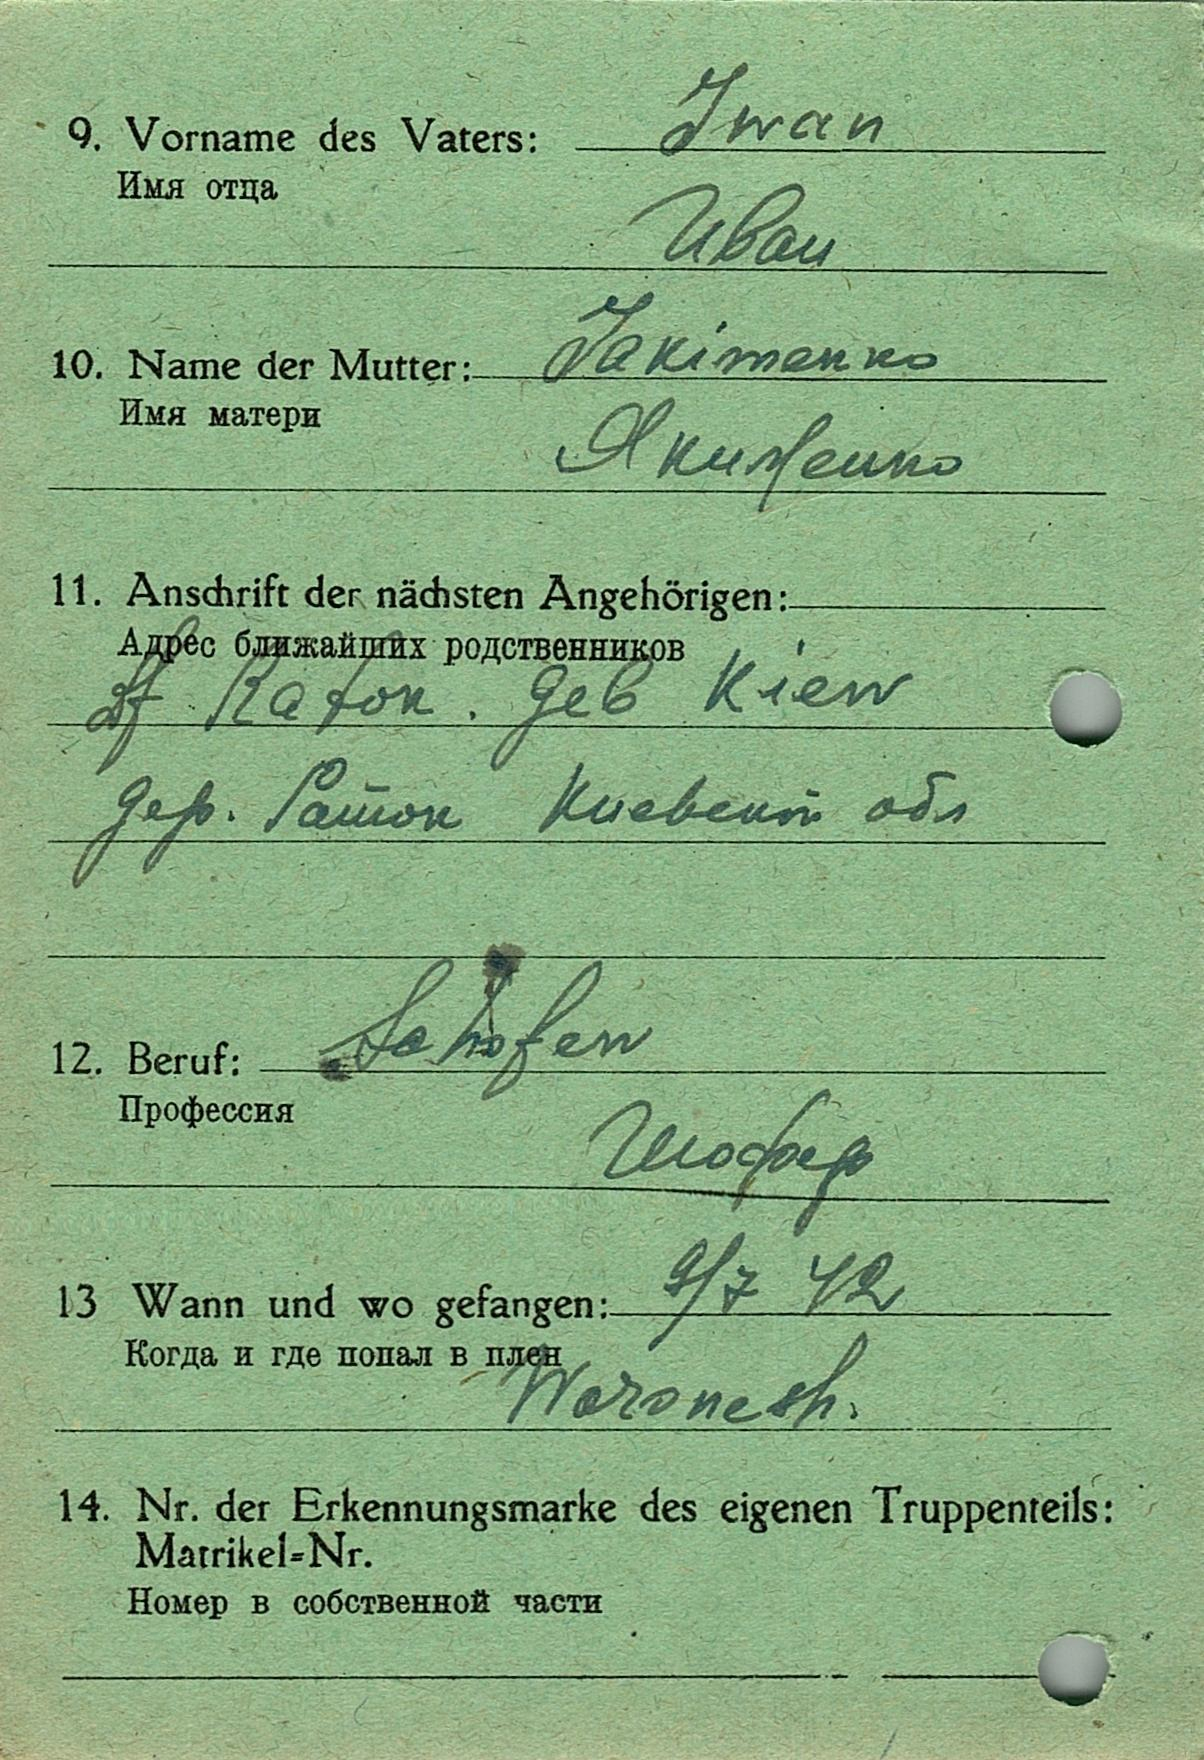 9. Vorname des Vaters: Iwan
Имя отца
Иван
10. Name der Mutter: Jakimenko
Имя матери
Якименко
11. Anschrift der nächsten Angehörigen:
Адрес ближайших родственников
Df Ratok. Geb Kiew
дер. Раток Киевской обл
12. Beruf: Schofer
Профессия
Шофер
13 Wann und wo gefangen: 9/7 42
Когда и где попал в плен
Woronesh.
14. Nr. der Erkennungsmarke des eigenen Truppenteils:
Matrikel=Nr.
Номер в собственной части